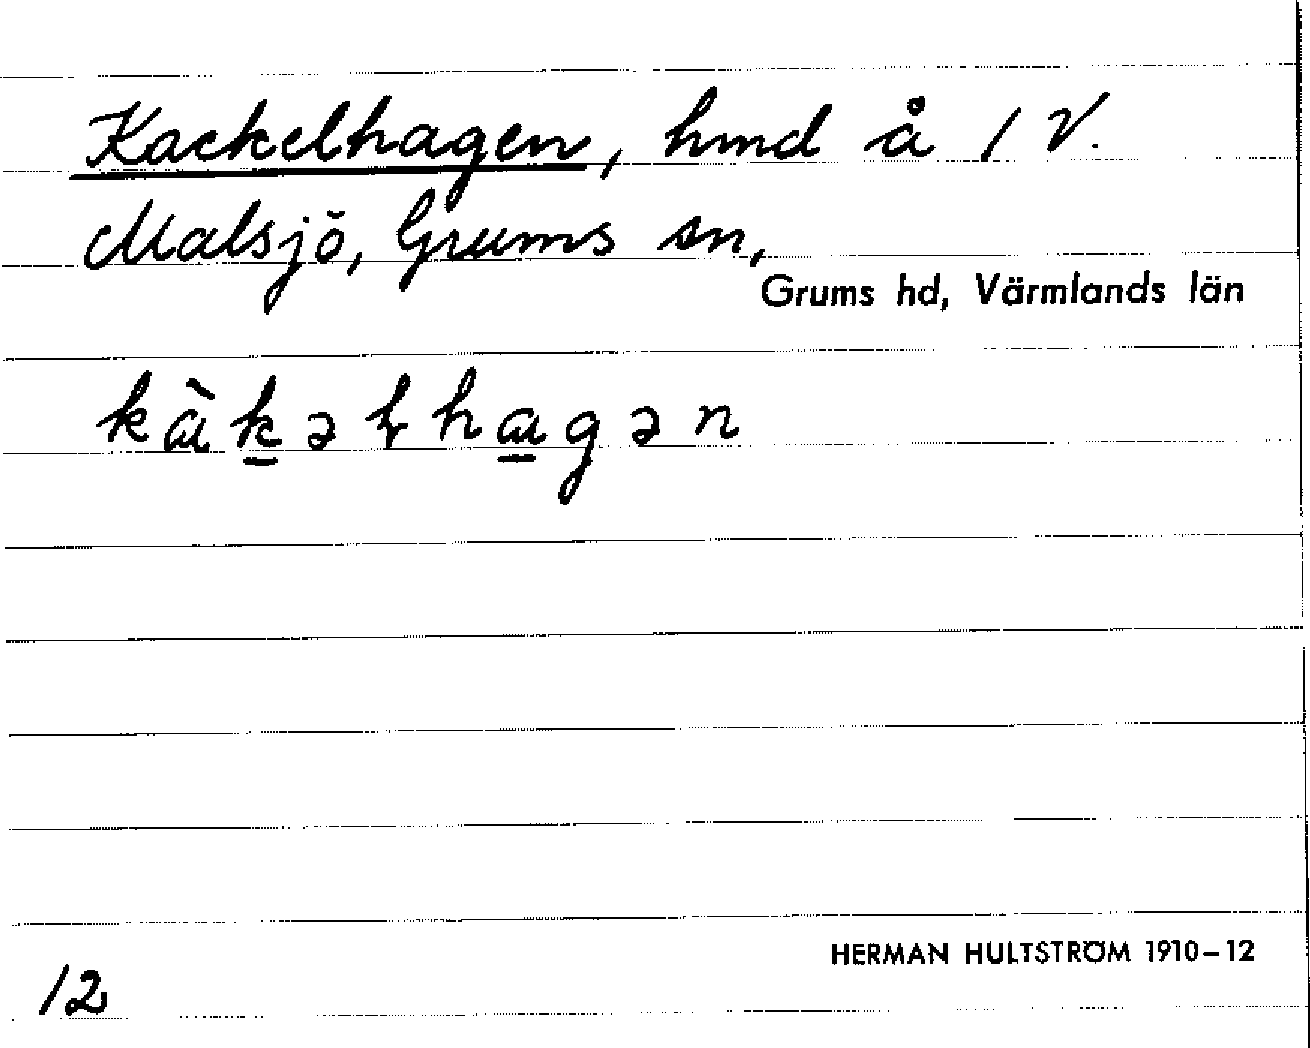 Kackelhagen, hmd å 1 V.
Malsjö, Grums sn,
Grums hd, Värmlands län
kàk̲əɫha̲gən
HERMAN HULTSTRÖM 1910–12
12